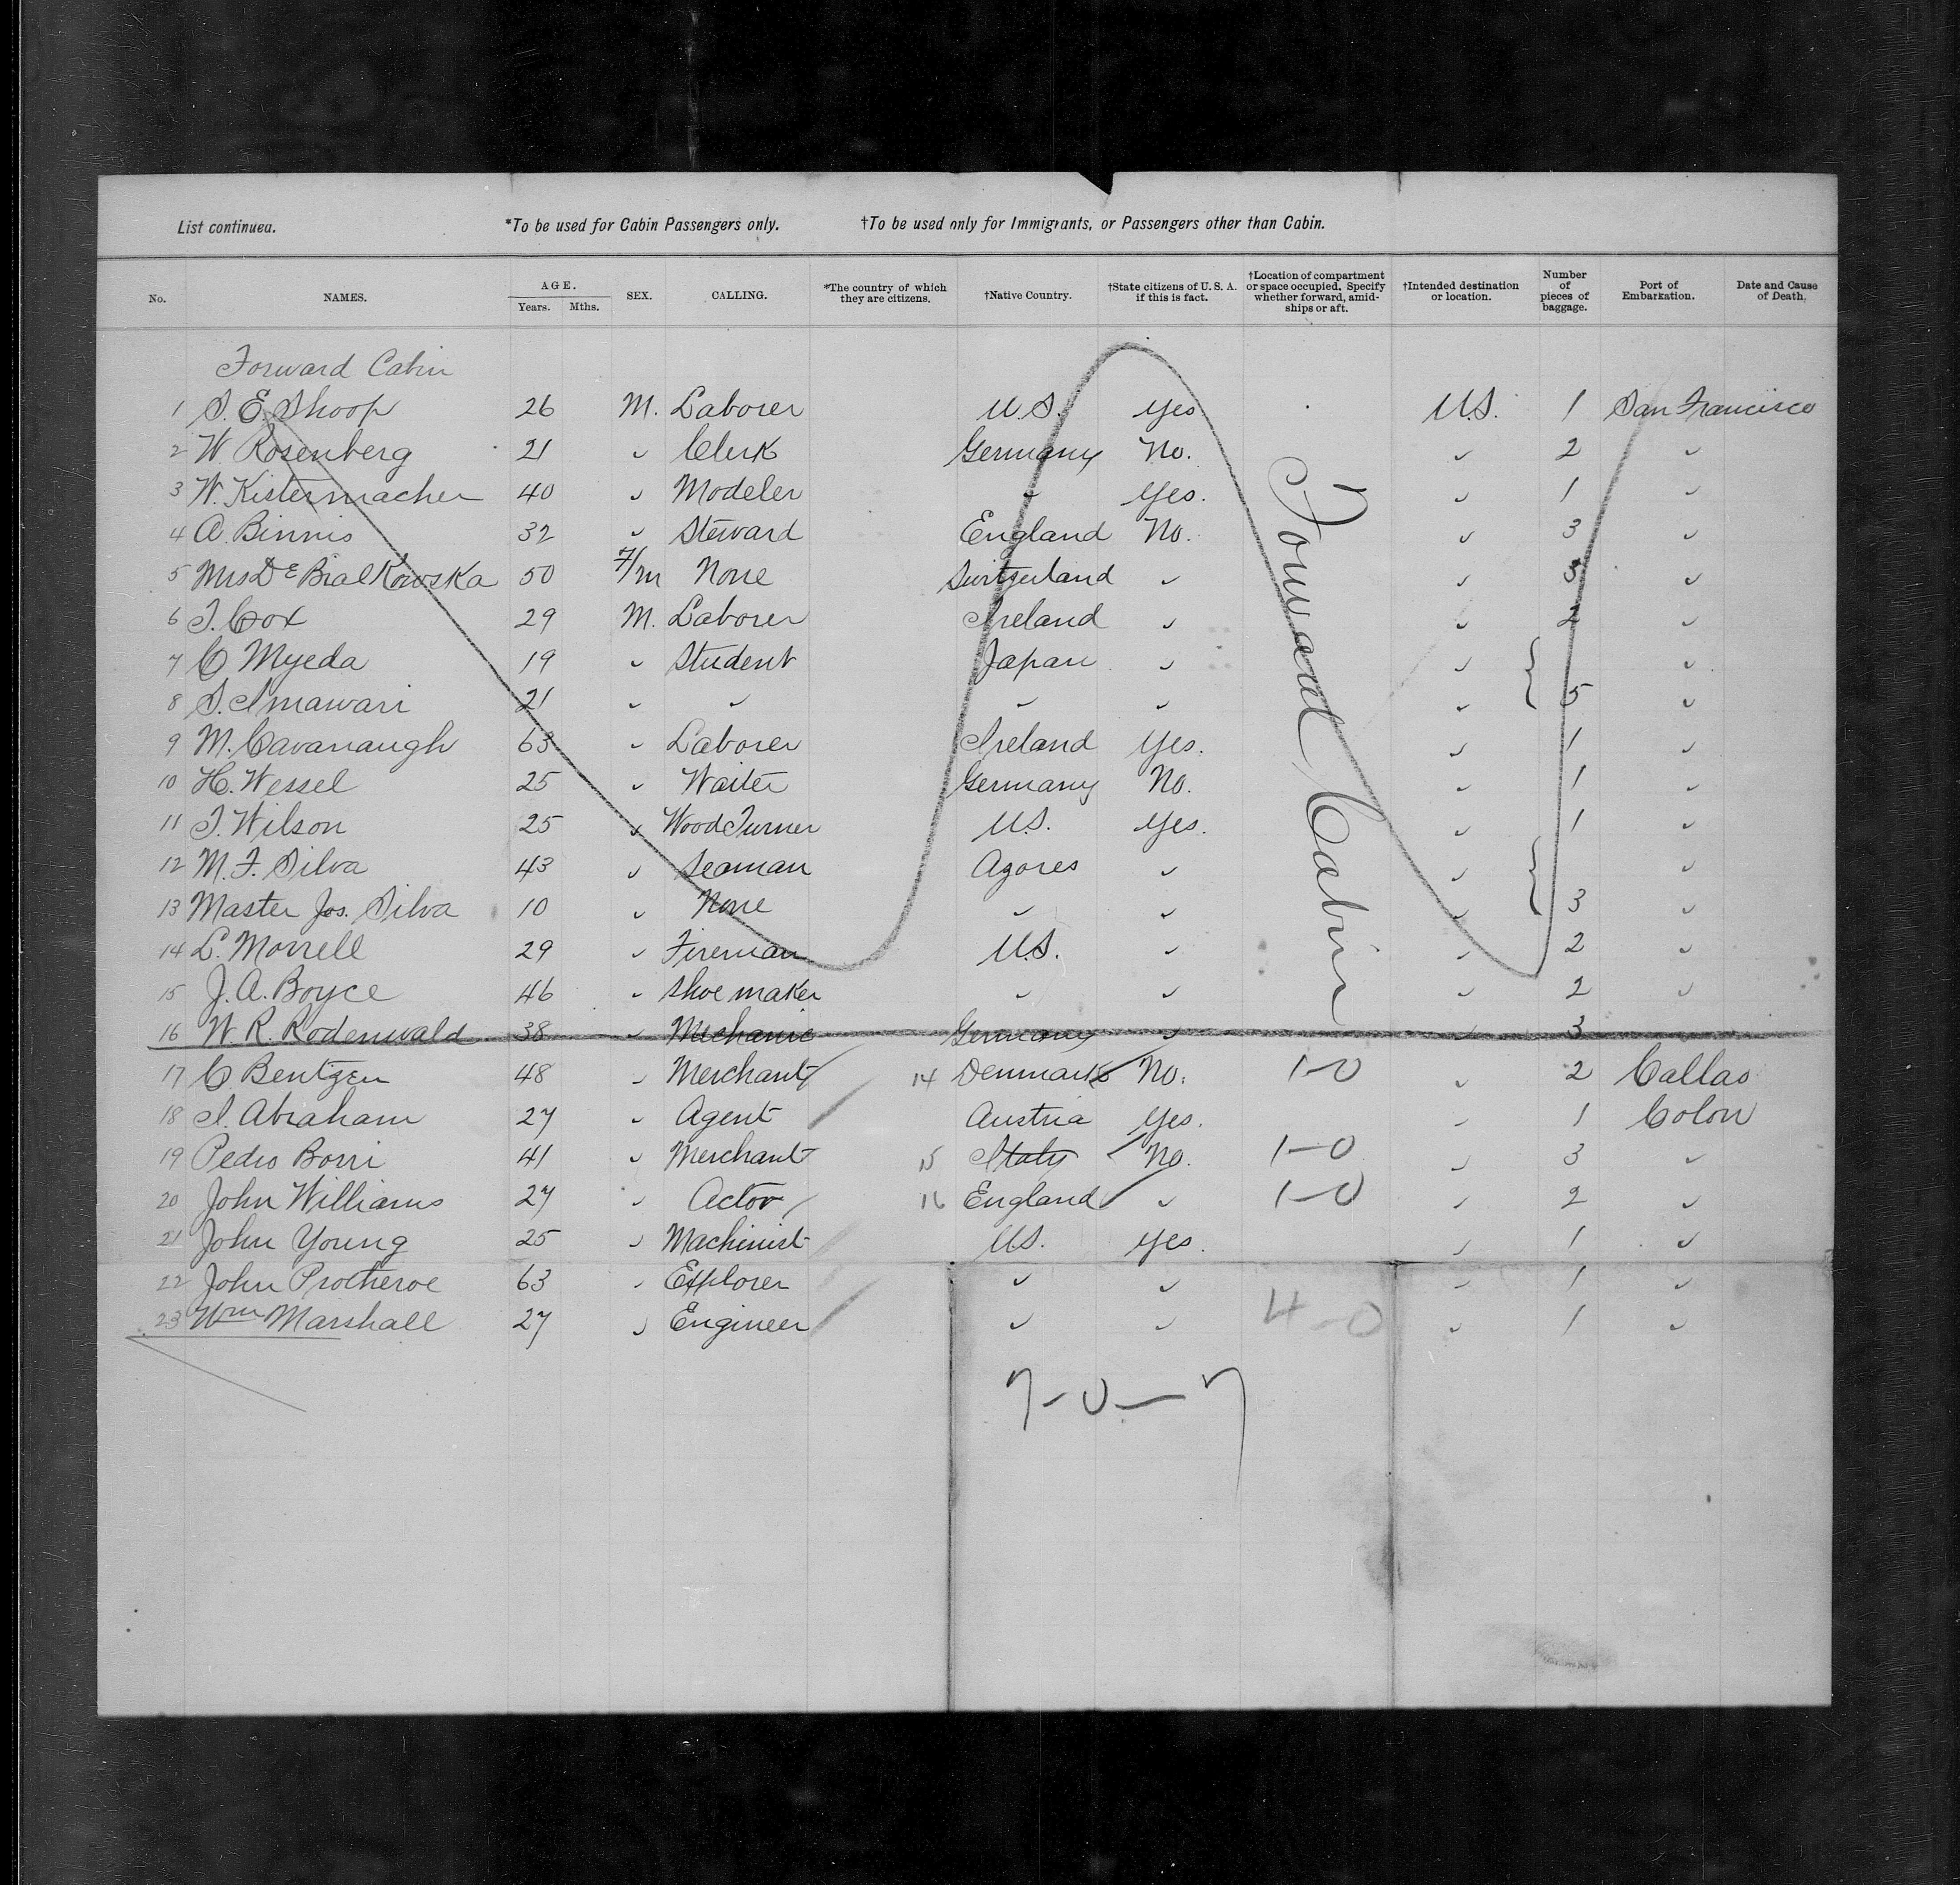 List continued. *To be used for Cabin Passengers only. †To be used only for Immigrants, or Passengers other than Cabin.
No. NAMES. AGE. Years. Mths. SEX. CALLING. *The country of which they are citizens. †Native Country. †State citizens of U. S. A. if this is fact. †Location of compartment or space occupied. Specify whether forward, amidships or aft. †Intended destination or location. Number of pieces of baggage. Port of Embarkation. Date and Cause of Death.
Forward Cabin
1 S. E. Shoop 26 M. Laborer U.S. Yes U.S. 1 San Francisco
2 W Rosenberg 21 " Clerk Germany No. " 2 "
3 W. Kistermacher 40 " Modeler " Yes. " 1 "
4 A. Binnis 32 " Steward England No. " 3 "
5 Mrs De Bialkowska 50 F/m None Switzerland " " 3 "
6 T. Cox 29 M. Laborer Ireland " " 2 "
7 C Myeda 19 " Student Japan " " { "
8 S. Imawari 21 " " " " " 5 "
9 M. Cavanaugh 63 " Laborer Ireland Yes. " 1 "
10 H. Wessel 25 " Waiter Germany No. " 1 "
11 T. Wilson 25 " Wood Turner U.S. Yes. " 1 "
12 M. F. Silva 43 " Seaman Azores " " { "
13 Master Jos. Silva 10 " None " " " 3 "
14 L. Morrell 29 " Fireman U.S. " " 2 "
15 J. A. Boyce 46 " Shoe maker " " " 2 "
16 W. R. Rodenwald 38 " Mechanic Germany " " 3
17 C Bentzen 48 " Merchant 14 Denmark No. 1-0 " 2 Callao
18 I. Abraham 27 " Agent Austria Yes. " 1 Colon
19 Pedro Borri 41 " Merchant 15 Italy No. 1-0 " 3 "
20 John Williams 27 " Actor 16 England " 1-0 " 2 "
21 John Young 25 " Machinist U.S. Yes. " 1 "
22 John Protheroe 63 " Explorer " " " 1 "
23 Wm Marshall 27 " Engineer " " 4-0 " 1 "
Forward Cabin
7-0-7